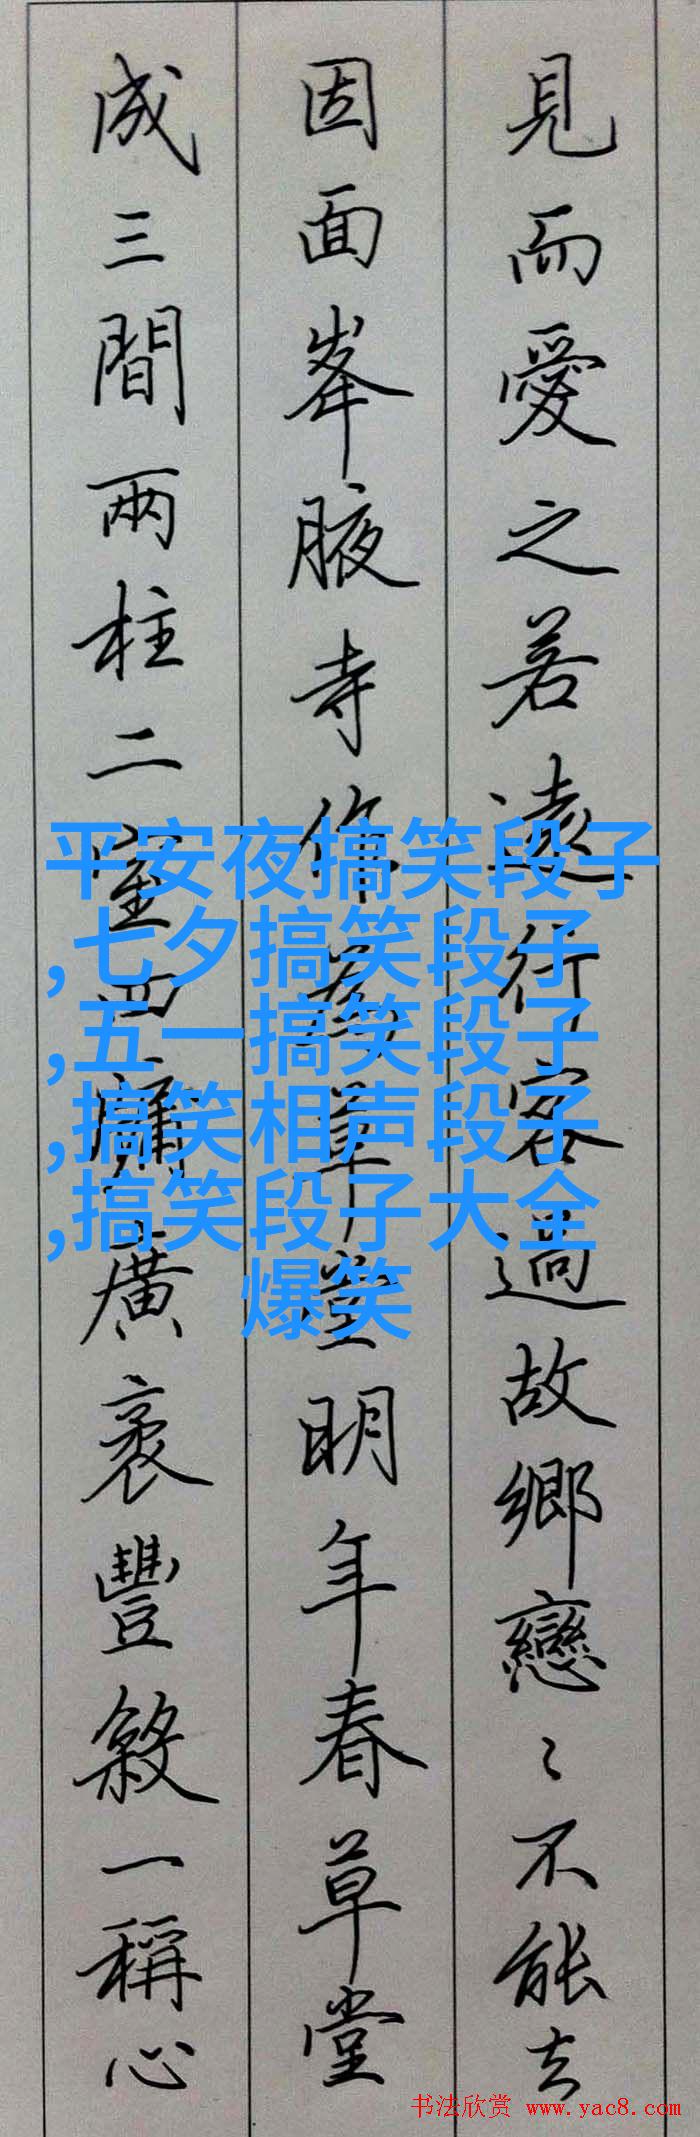 見而愛之若遠行客過故鄉戀〻不能去
因面峯腋寺作為草堂明年春草堂
成三間兩柱二室四牖廣袤豐殺一稱心
平安夜搞笑段子
,七夕搞笑段子
,五一搞笑段子
,搞笑相声段子
,搞笑段子大全
爆笑
书法欣赏 www.yac8.com